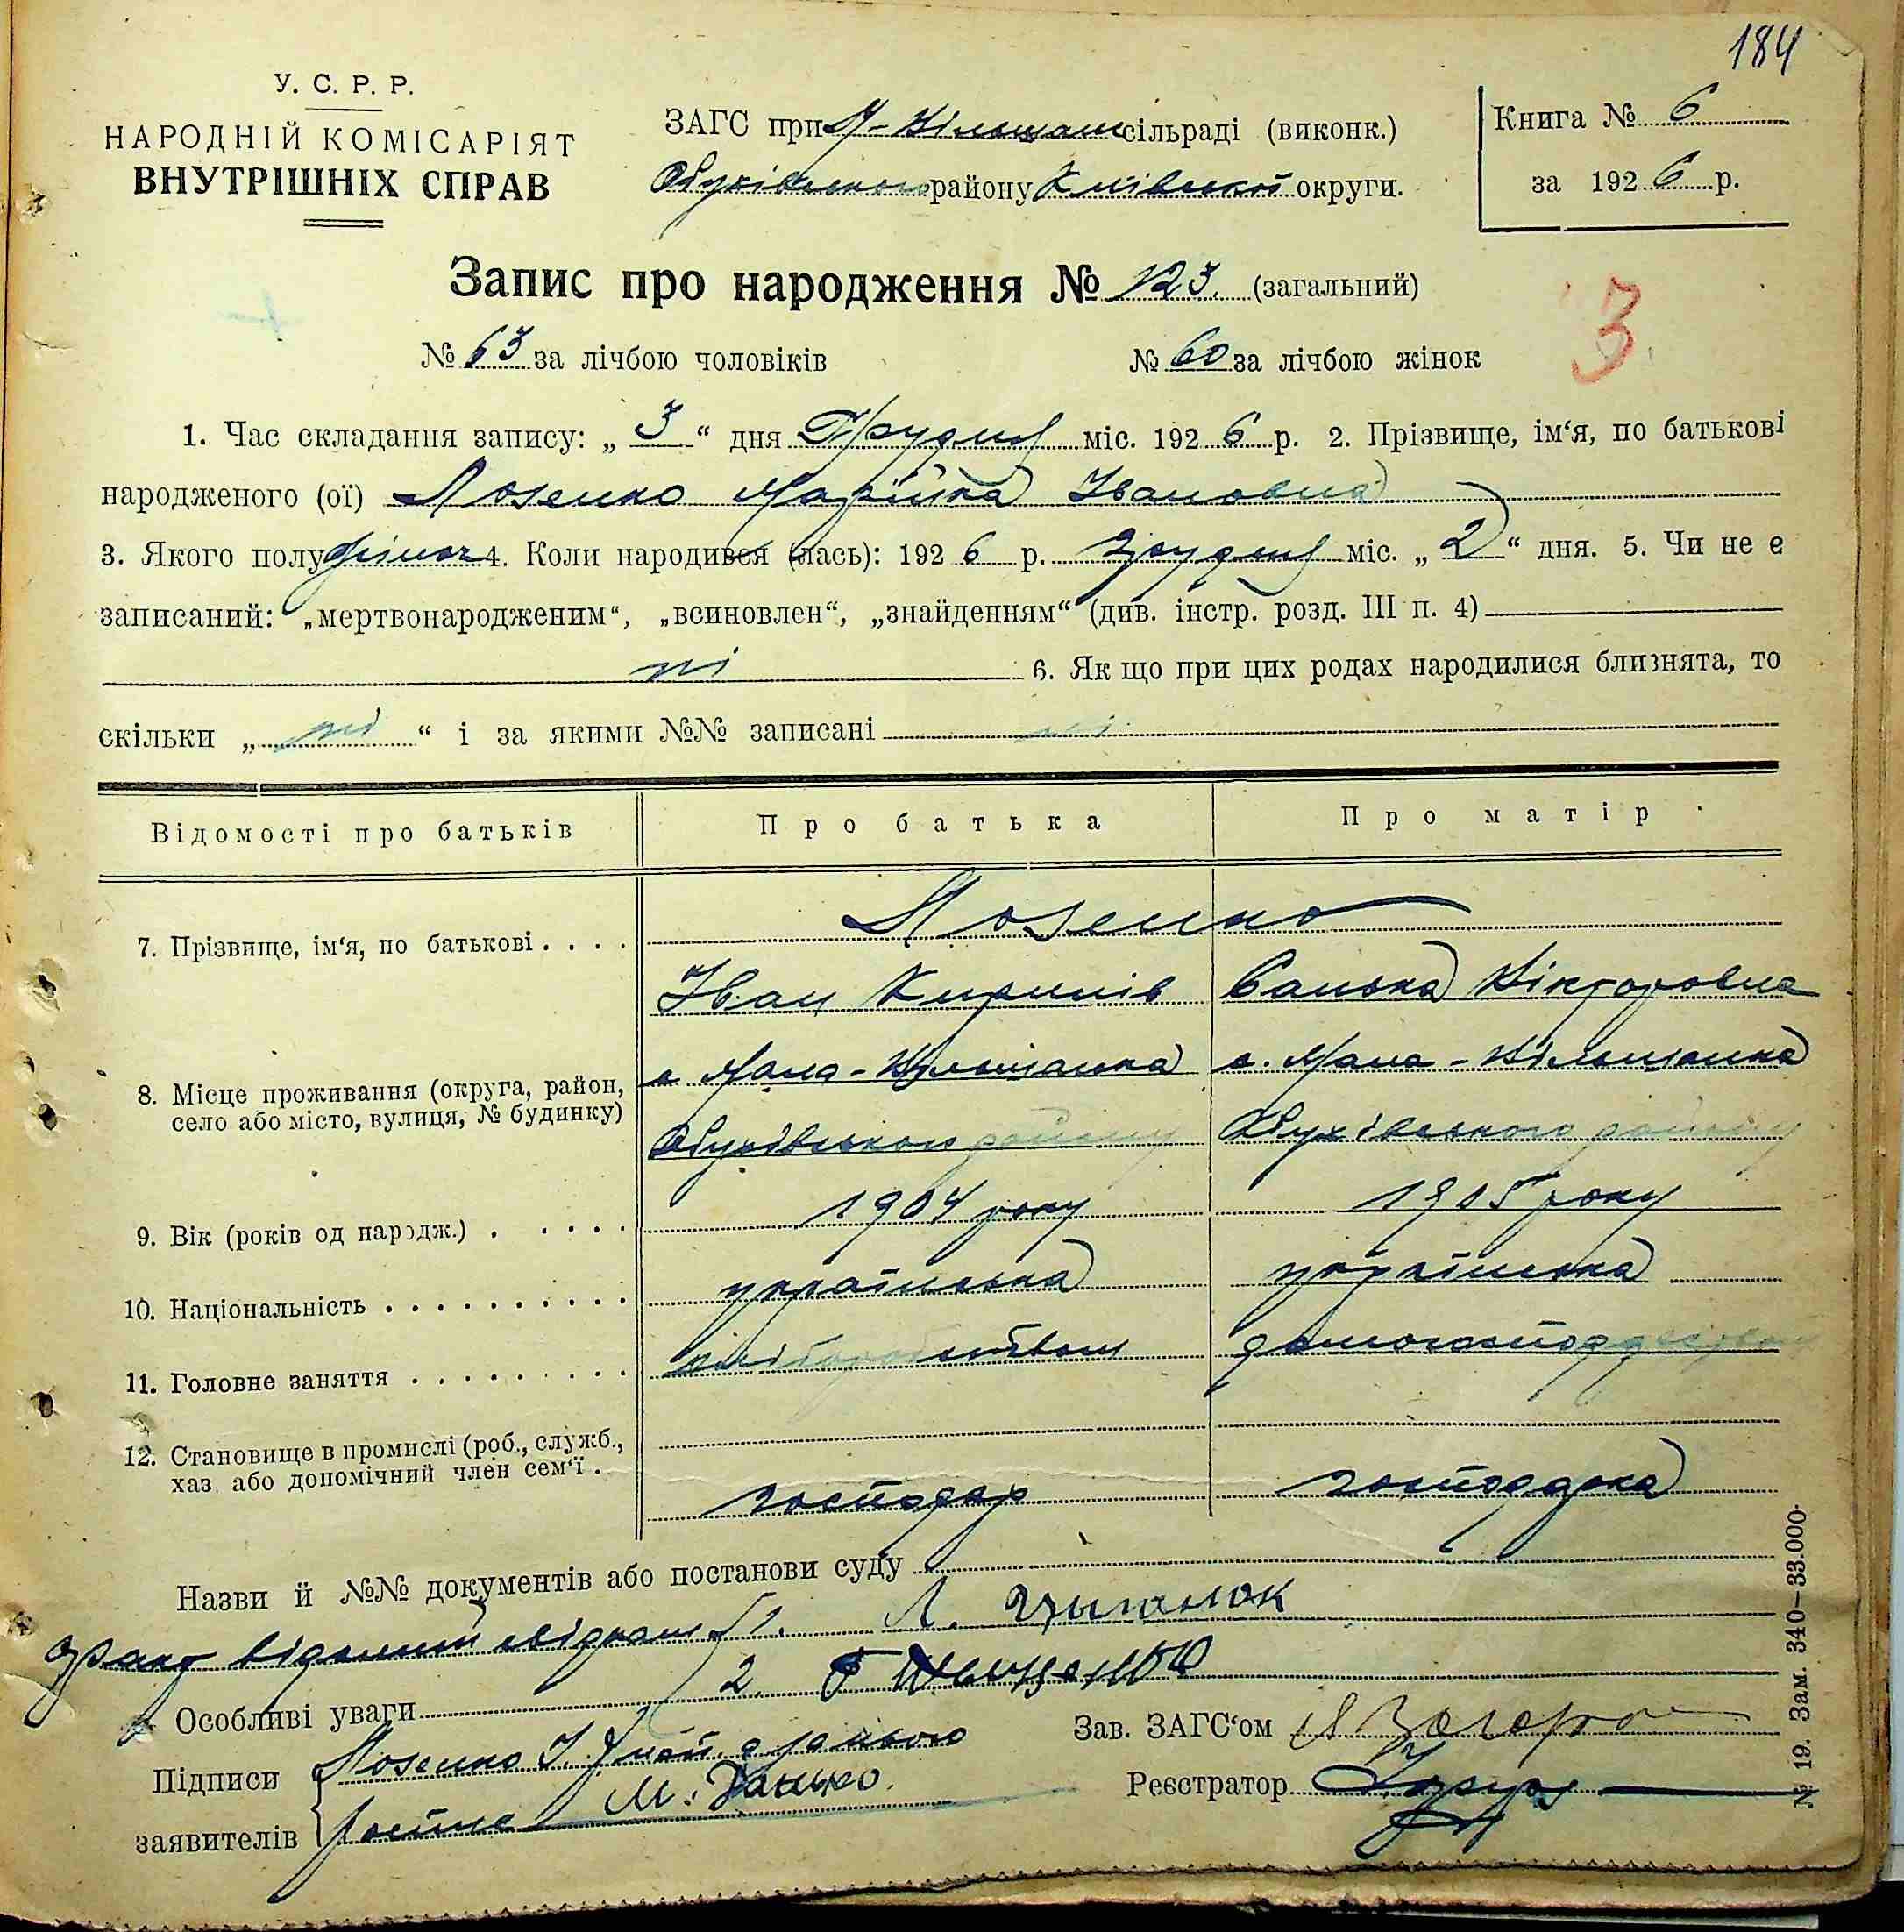 184
У. С. Р. Р.
НАРОДНІЙ КОМІСАРІЯТ
ВНУТРІШНІХ СПРАВ
ЗАГС при М-Вільшан сільраді (виконк.)
Обухівського району Київської округи.
Книга № 6
за 1926 р.
Запис про народження № 123. (загальний)
3
№ 63 за лічбою чоловіків № 60 за лічбою жінок
1. Час складання запису: „ 3 “ дня Грудня міс. 1926 р. 2. Прізвище, ім‘я, по батькові
народженого (ої) Лозенко Марійка Івановна
3. Якого полу жіноч 4. Коли народився (лась): 1926 р. грудня міс. „ 2 “ дня. 5. Чи не є
записаний: „мертвонародженим“, „всиновлен“, „знайденням“ (див. інстр. розд. III п. 4)
ні 6. Як що при цих родах народилися близнята, то
скільки „ ні “ і за якими №№ записані ні
Відомості про батьків Про батька Про матір
7. Прізвище, ім‘я, по батькові . . . . Лозенко
Іван Кирилів Ганька Вікторовна
8. Місце проживання (округа, район, село або місто, вулиця, № будинку)
с. Мала-Вільшанка с. Мала-Вільшанка
Обухівського району Обухівського району
9. Вік (років од народж.) . . . . . 1904 року 1905 року
10. Національність . . . . . . . . . . українська українська
11. Головне заняття . . . . . . . . . хліборобством
12. Становище в промислі (роб., служб.,
хаз. або допомічний член сем‘ї .
господар господарка
Назви й №№ документів або постанови суду
Факт відомий свідкам 1. Л. Цыганок
2.
Особливі уваги
Підписи заявителів
Лозенко І.
М. Данько.
Зав. ЗАГС‘ом
Реєстратор
№ 19. Зам. 340–33.000.